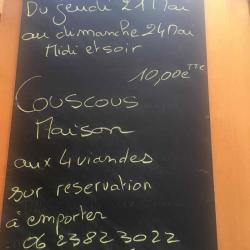 Du jeudi 21 Mai
au dimanche 24 Mai
Midi et soir
10,00€ TTC
Couscous
Maison
aux 4 viandes
sur reservation
à emporter
06 23823022